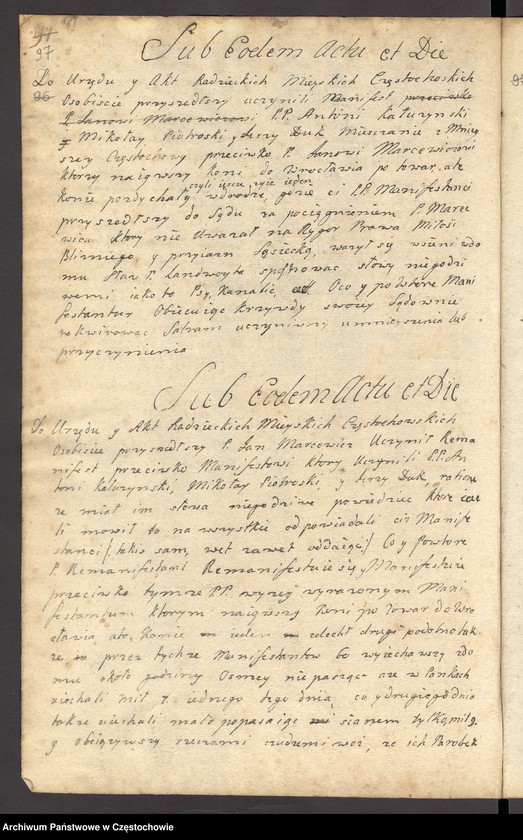 97
97
Sub Eodem Actu et Die
Do Urzędu y Akt Radzieckich Mieyskich Częstochoskich
86 Osobiscie przyszedłszy uczynili Manifest przeciwko
P. Janowi Marcewiczowi PP. Antoni Kałuzynski
y Mikołay Piotroski y Jerzy Duk Mieszczanie z Mniey
szey Częstochowy przeciwko P. Janowi Marcewiczowi
ktory naiąwszy koni do Wrocławia po towar, ate
konie pozdychały w drodze, gdzie ci PP. Manifestanci
przyszedłszy do Sądu za pociągnieniem P. Marce
wica ktory nie Uwazał na Rygor Prawa Miłosi
Blizniego, y przyiazn Sąsiecką, wazył się w sieni w do
mu Sław. P. Landwoyta słowy niegodzi
wemi iako to Psy, Kanalie, Oco y powtore Mani
festantur Obiecuiąc krzywdy swoiey Sądownie
rekwirować Salvam uczyniwszy umnieyszenia lub
przyczynienia
Sub Eodem Actu et Die
Do Urzędu y Akt Radzieckich Mieyskich Częstochowskich
Osobiscie przyszedłszy P. Jan Marcewicz Uczynił Rema
nifest przeciwko Manifestowi ktory Uczynili PP. An
toni Kałuzynski, Mikołay Piotroski, y Jerzy Duk, ratione
ze miał im słowa niegodziwe powiedziec ktore
li mowił to na wszystkie odpowiadali ciz Manife
stanci /: takis sam, wet za wet oddaiąc :/ Co y powtore
P. Remanifestant Remanifestuie się y Manifestuie
przeciwko tymze PP. wyzey wyrazonym Mani
festantom ktorym naiąwszy Koni po towar do Wro
cławia, ate Konie ieden zdechł drugi podobno tak
ze przez tychze Manifestantow bo wyiechawszy z do
mu około godziny Osmey nie pasząc aze w Łankach
uiechali mil 7. iednego tego dnia, co y drugiego dnia
takze uiechali mało popasaiąc sianem tylko, mil 9.
y obciązywszy rzeczami cudzemi woz, ze ich Parobek
Archiwum Państwowe w Częstochowie